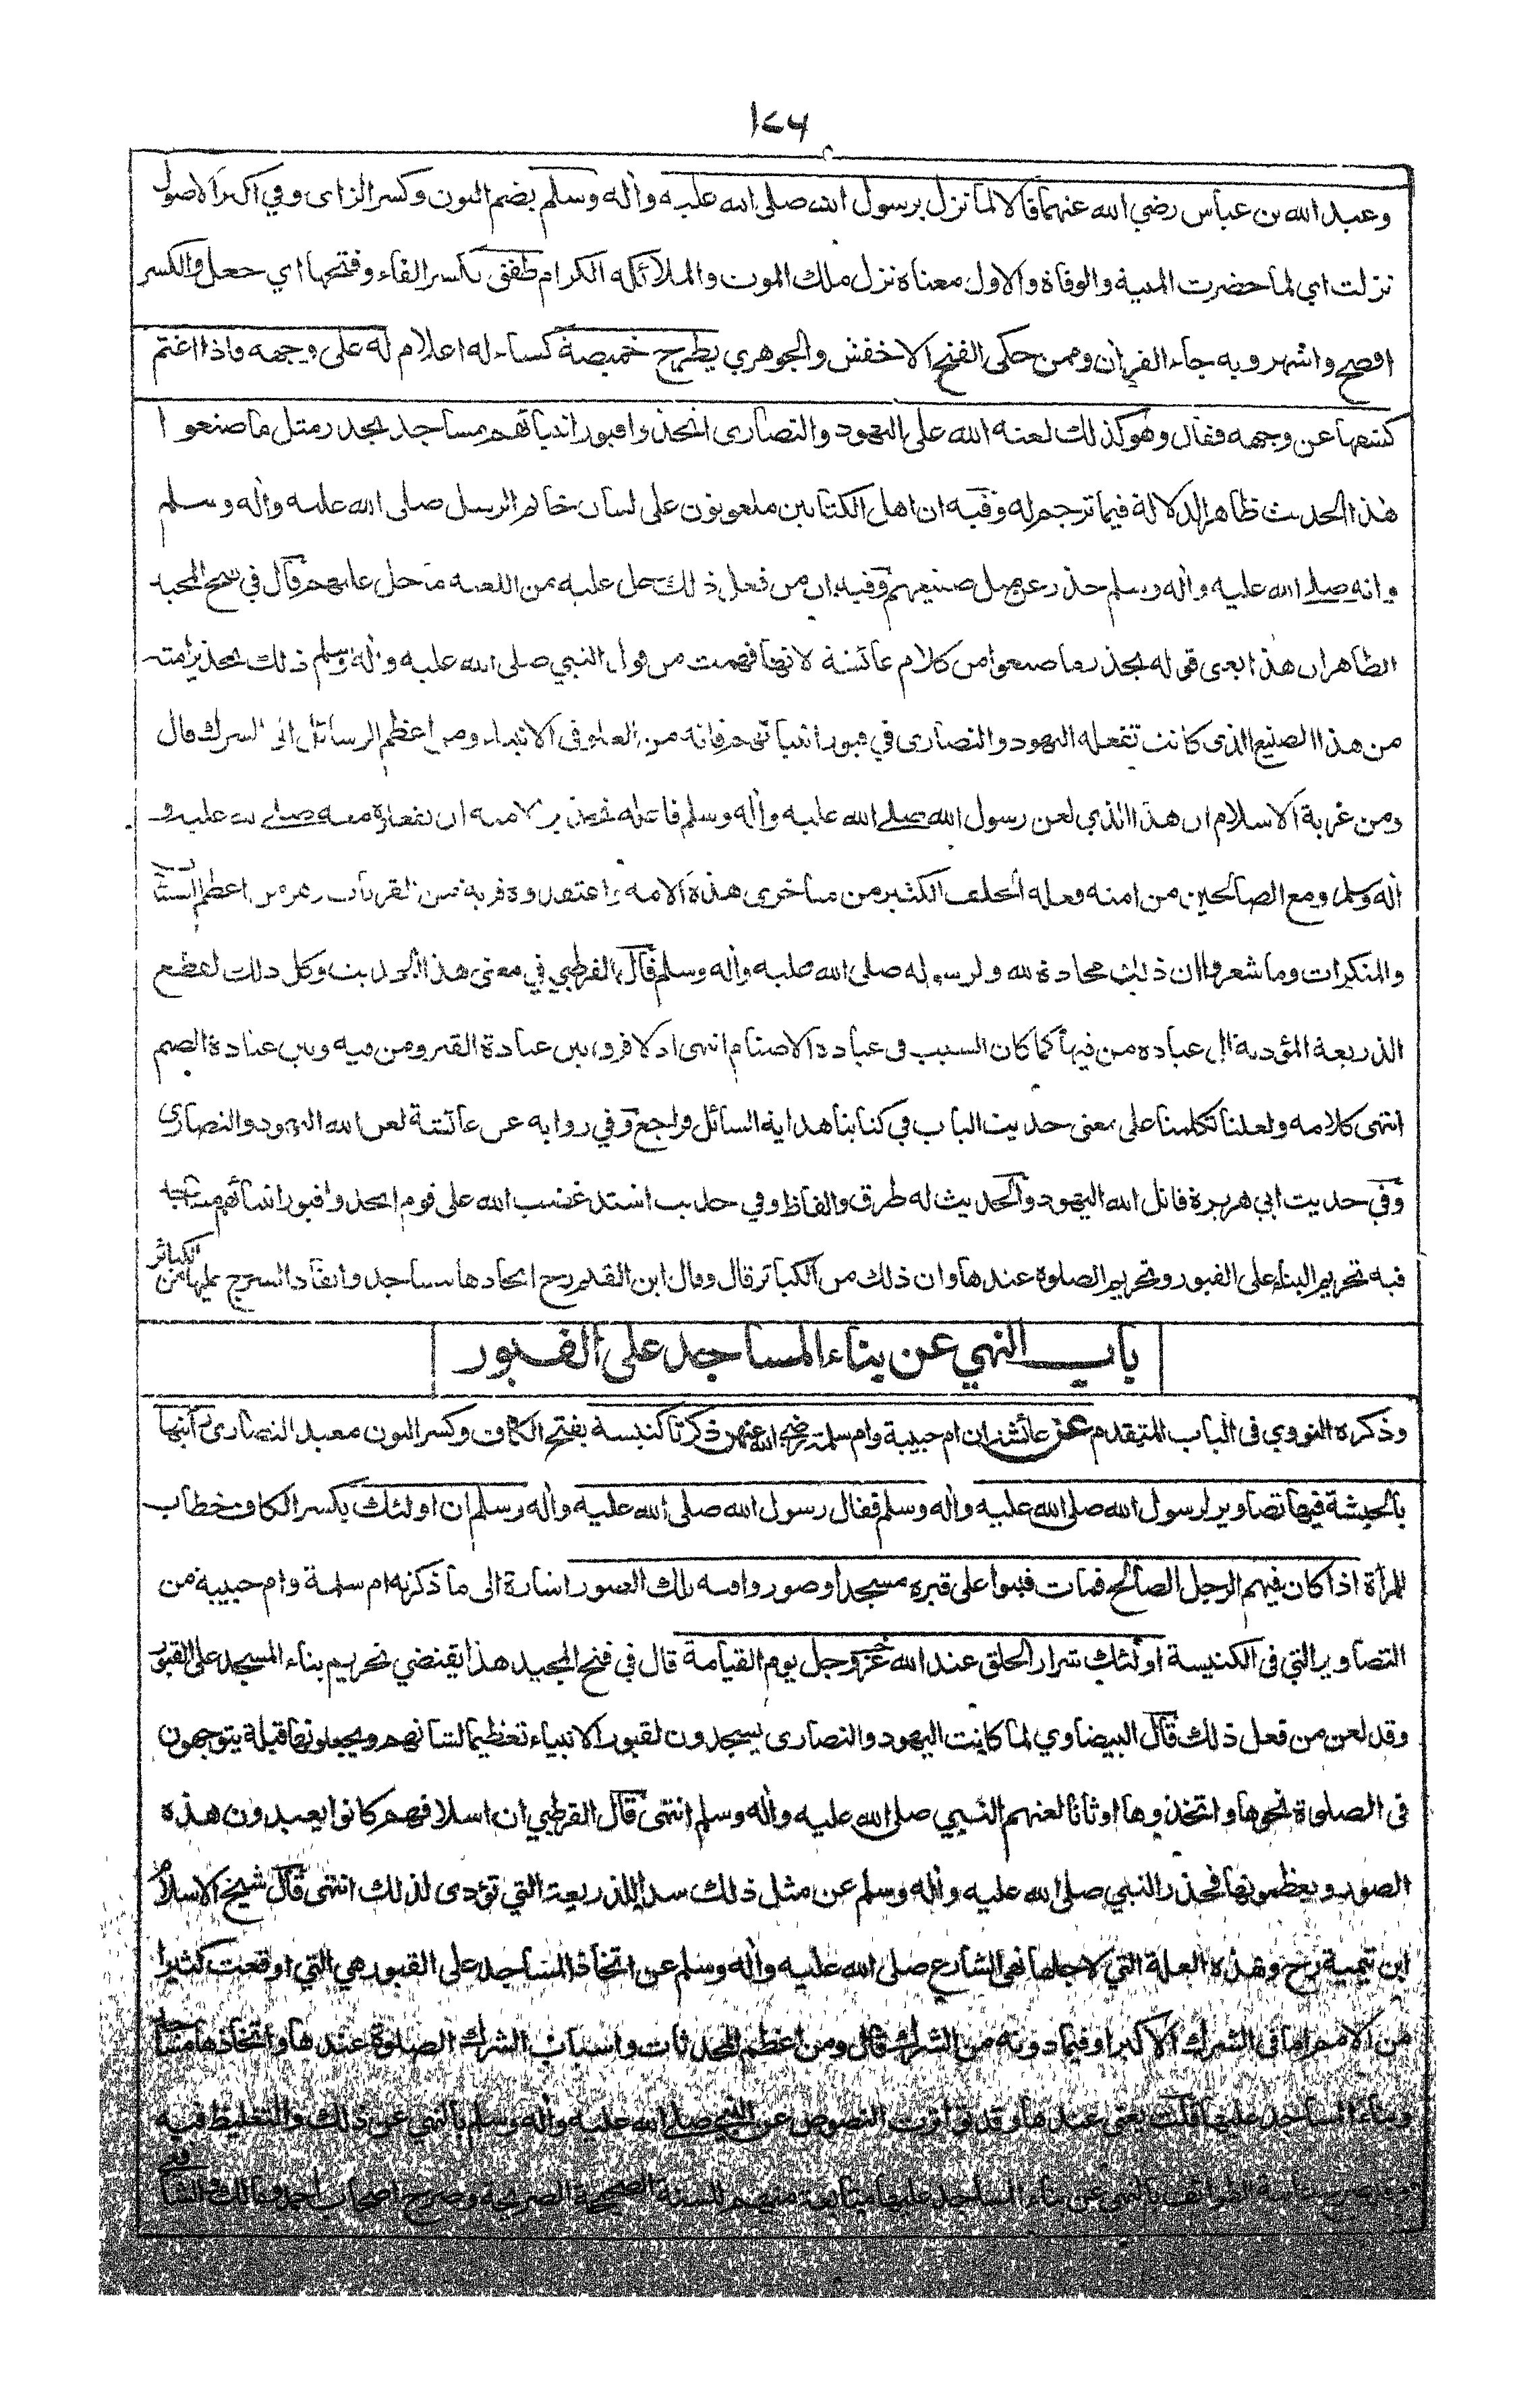 ١٧٦
وعبد الله بن عباس رضي الله عنهما قالا لما نزل برسول الله صلى الله عليه وأله وسلم بضم النون وكسر الزاى وفي اكثر الاصول
نزلت اي لما حضرت المنية والوفاة والاول معناه نزل ملك الموت والملائكة الكرام طفق بكسر الفاء وفتحها اي جعل والكسر
افصح واشهر وبه جاء القرأن وممن حكى الفتح الاخفش والجوهري يطرح خميصة كساء له اعلام له على وجهه فاذا اغتم
كشفها عن وجهه فقال وهو كذلك لعنة الله على اليهود والنصارى اتخذوا قبور انبيائهم مساجد يحذر مثل ما صنعوا
هذا الحديث ظاهر الدلالة فيما ترجم له وفيه ان اهل الكتابين ملعونون على لسان خاتم الرسل صلى الله عليه وأله وسلم
وانه صلى الله عليه وأله وسلم حذر عن مثل صنيعهم وفيه ان من فعل ذلك حل عليه من اللعنة ما حل عليهم قال في فتح المجيد
الظاهر ان هذا يعنى قوله يحذر ما صنعوا من كلام عائشة لانها فهمت من قول النبي صلى الله عليه وأله وسلم ذلك تحذير امته
من هذا الصنيع الذى كانت تفعله اليهود والنصارى في قبور انبيائهم فانه من الغلو في الانبياء ومن اعظم الرسائل الى الشرك قال
ومن غربة الاسلام ان هذا الذي لعن رسول الله صلى الله عليه وأله وسلم فاعله تحذيرا لامته ان يفعلوه معه صلى الله عليه و
أله وسلم ومع الصالحين من امته وفعله الخلف الكثير من متأخرى هذه الامة واعتقدوه قربة من القربات وهو من اعظم السيئات
والمنكرات وما شعروا ان ذلك محادة لله ولرسوله صلى الله عليه وأله وسلم قال القرطبي في معنى هذا الحديث وكل ذلك لقطع
الذريعة المؤدية الى عبادة من فيها كما كان السبب فى عبادة الاصنام انتهى اذ لا فرق بين عبادة القبر ومن فيه وبين عبادة الصنم
انتهى كلامه ولعلنا تكلمنا على معنى حديث الباب في كتابنا هداية السائل فراجع وفي رواية عن عائشة لعن الله اليهود والنصارى
وفي حديث ابي هريرة قاتل الله اليهود والحديث له طرق والفاظ وفي حديث اشتد غضب الله على قوم اتخذوا قبور انبيائهم مساجد
فيه تحريم البناء على القبور وتحريم الصلوة عندها وان ذلك من الكبائر قال وقال ابن القيم رح اتخاذها مساجد وايقاد السرج عليها من الكبائر
باب النهي عن بناء المساجد على القبور
وذكره النووي فى الباب المتقدم عن عائشة ان ام حبيبة وام سلمة رضي الله عنهن ذكرتا كنيسة بفتح الكاف وكسر النون معبد النصارى رأينها
بالحبشة فيها تصاوير لرسول الله صلى الله عليه وأله وسلم فقال رسول الله صلى الله عليه وأله وسلم ان اولئك بكسر الكاف خطاب
للمرأة اذا كان فيهم الرجل الصالح فمات فبنوا على قبره مسجدا وصوروا فيه تلك الصور اشارة الى ما ذكرته ام سلمة وام حبيبة من
التصاوير التي فى الكنيسة اولئك شرار الخلق عند الله عز وجل يوم القيامة قال في فتح المجيد هذا يقتضي تحريم بناء المسجد على القبور
وقد لعن من فعل ذلك قال البيضاوي لما كانت اليهود والنصارى يسجدون لقبور الانبياء تعظيما لشانهم ويجعلونها قبلة يتوجهون
فى الصلوة نحوها واتخذوها اوثانا لعنهم النبي صلى الله عليه وأله وسلم انتهى قال القرطبي ان اسلافهم كانوا يعبدون هذه
الصور ويعظمونها فحذر النبي صلى الله عليه وأله وسلم عن مثل ذلك سدا للذريعة التي تؤدى لذلك انتهى قال شيخ الاسلام
ابن تيمية رح وهذه العلة التي لاجلها نهى الشارع صلى الله عليه وأله وسلم عن اتخاذ المساجد على القبور هي التي اوقعت كثيرا
من الامم اما فى الشرك الاكبر او فيما دونه من الشرك قال ومن اعظم المحدثات واسباب الشرك الصلوة عندها واتخاذها مساجد
وبناء المساجد عليها قلت يعنى عندها وقد تواترت النصوص عن النبي صلى الله عليه وأله وسلم بالنهي عن ذلك والتغليظ فيه
وقد صرح عامة الطوائف بالنهي عن بناء المساجد عليها متابعة منهم للسنة الصحيحة الصريحة وصرح اصحاب احمد ومالك والشافعي